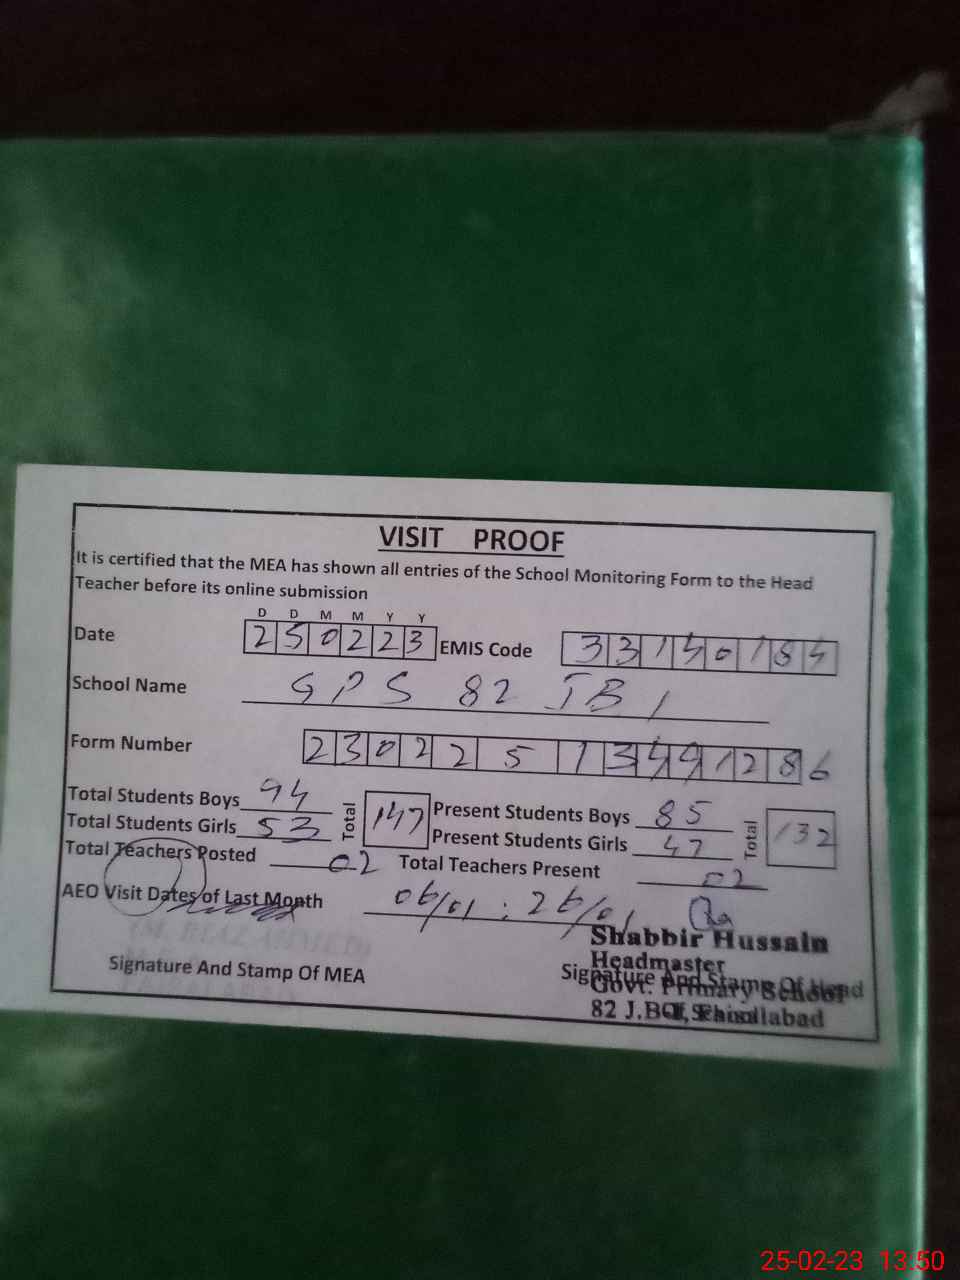 VISIT PROOF
It is certified that the MEA has shown all entries of the School Monitoring Form to the Head
Teacher before its online submission
D D M M Y Y
Date 250223 EMIS Code 33140184
School Name GPS 82 JB I
Form Number 230225134491286
Total Students Boys 94 Total 147 Present Students Boys 85 Total 132
Total Students Girls 53 Present Students Girls 47
Total Teachers Posted 02 Total Teachers Present 02
AEO Visit Dates of Last Month 06/01 : 26/01
Shabbir Hussain
Headmaster
Signature And Stamp Of MEA Signature And Stamp Of Head
Govt. Primary School
82 J.B
25-02-23 13.50